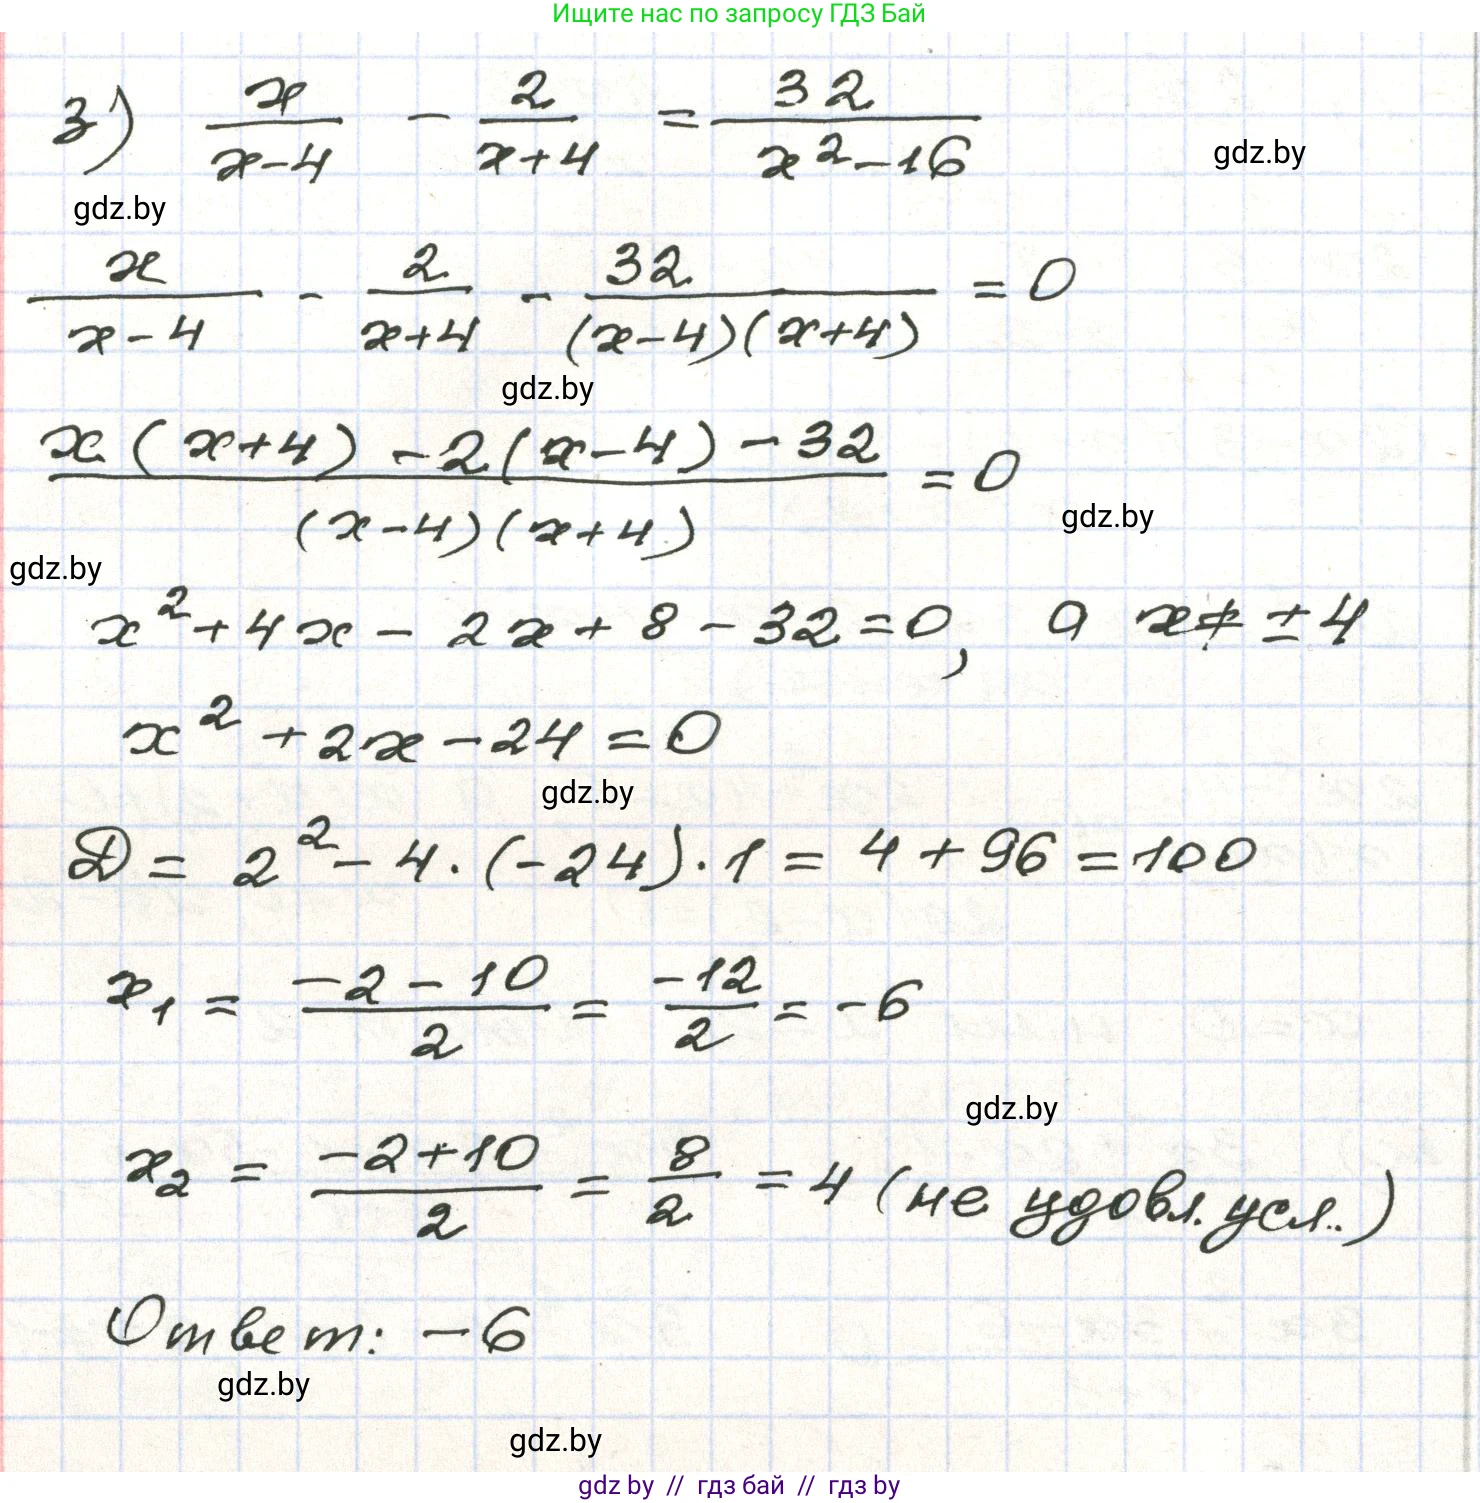 Ищите нас по запросу ГДЗ Бай
з) x/(x-4) - 2/(x+4) = 32/(x²-16)
gdz.by
gdz.by
x/(x-4) - 2/(x+4) - 32/((x-4)(x+4)) = 0
gdz.by
(x(x+4) - 2(x-4) - 32)/((x-4)(x+4)) = 0
gdz.by
gdz.by
x² + 4x - 2x + 8 - 32 = 0, а x ≠ ± 4
x² + 2x - 24 = 0
gdz.by
D = 2² - 4 · (-24) · 1 = 4 + 96 = 100
x₁ = (-2 - 10)/2 = -12/2 = -6
gdz.by
x₂ = (-2+10)/2 = 8/2 = 4 (не удовл. усл.)
Ответ: -6
gdz.by
gdz.by
gdz.by // гдз бай // гдз by